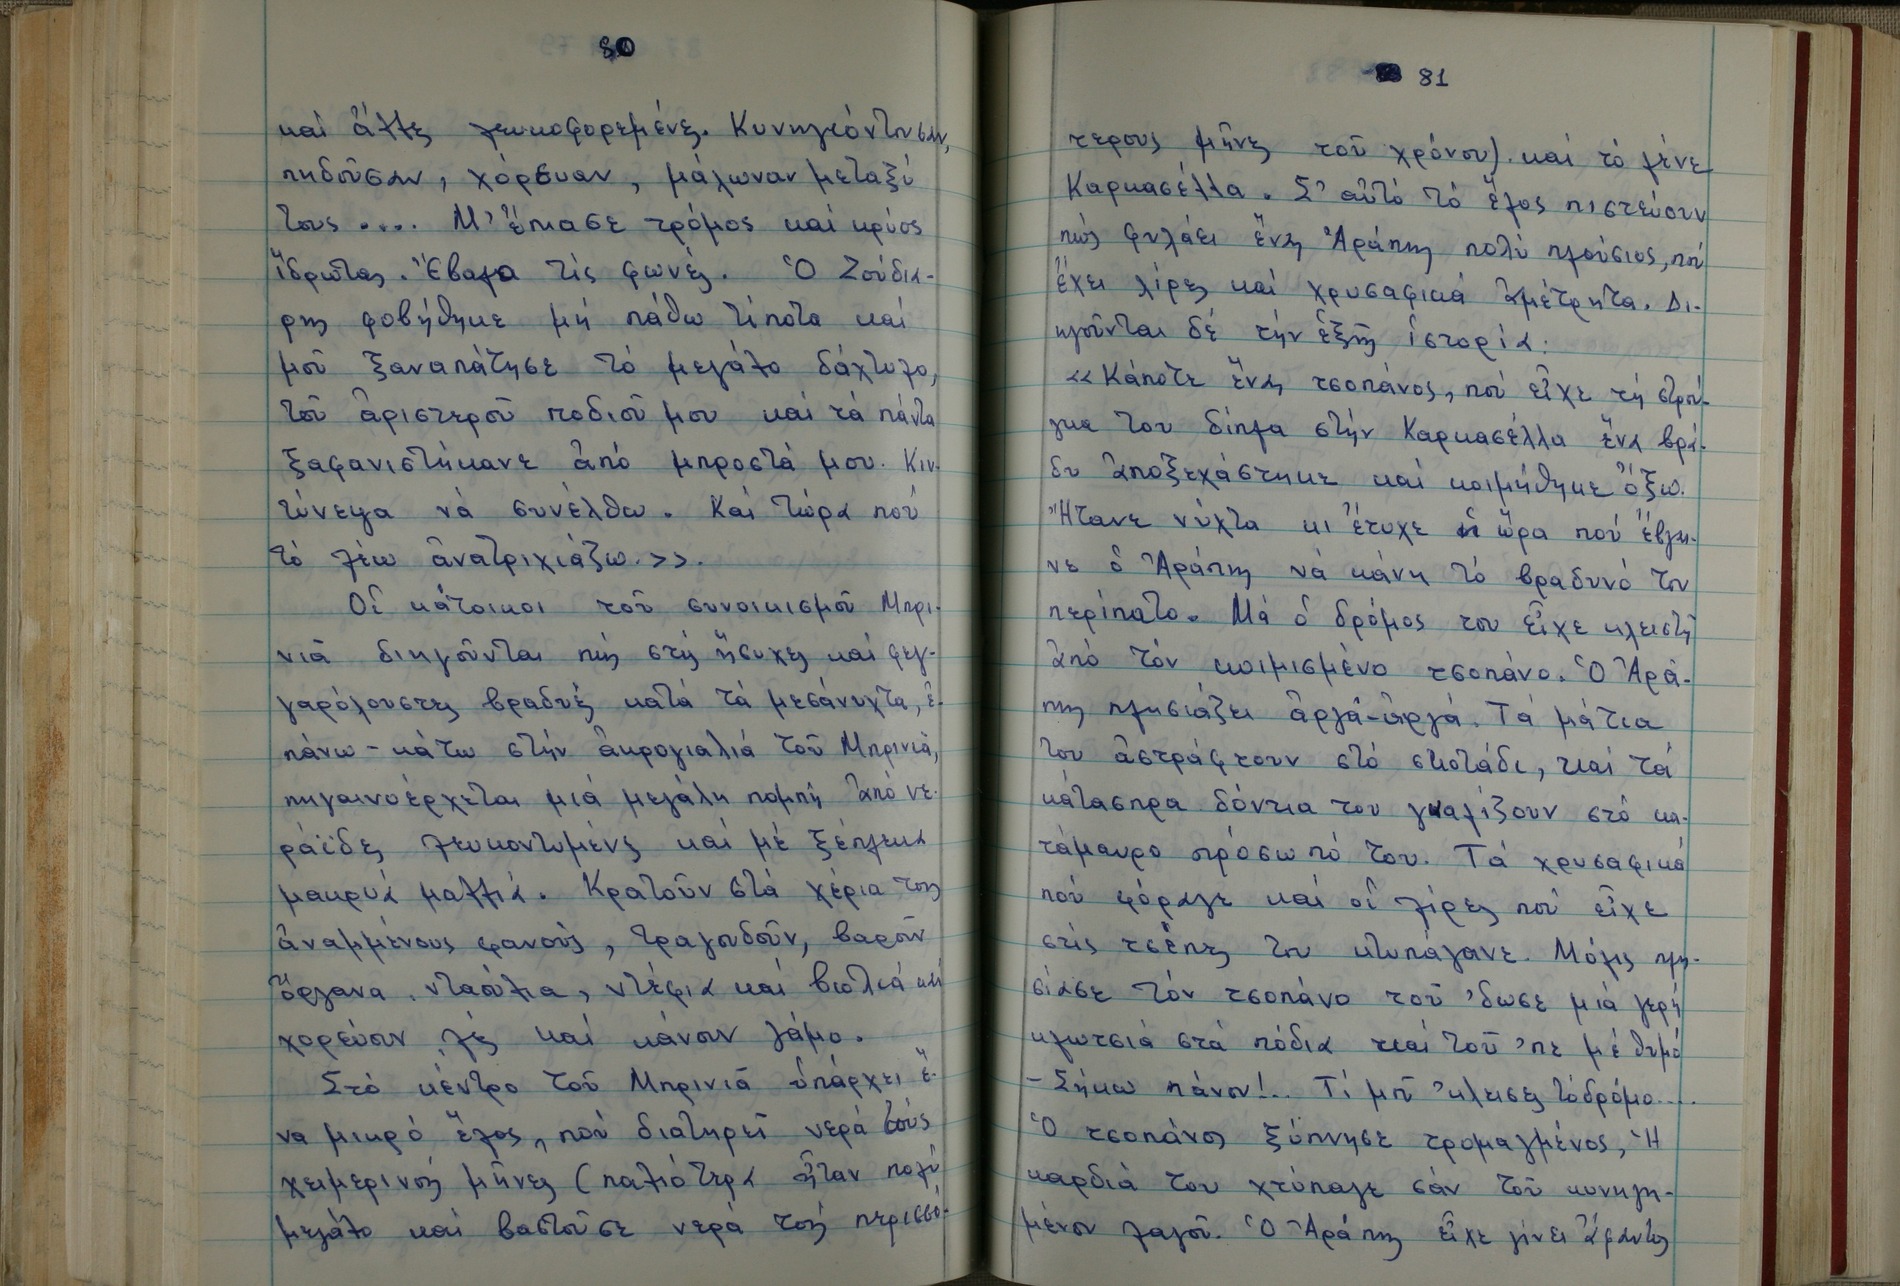 80
καί ἄλλες λευκοφορεμένες. Κυνηγιόντουσαν,
πηδοῦσαν, χόρευαν, μάλωναν μεταξύ
τους.... Μ' ἔπιασε τρόμος καί κρύος
ἵδρωτας. Ἔβαλα τίς φωνές. Ὁ Ζούδια-
ρης φοβήθηκε μή πάθω τίποτα καί
μοῦ ξαναπάτησε τό μεγάλο δάχτυλο,
τοῦ ἀριστεροῦ ποδιοῦ μου καί τά πάντα
ξαφανιστήκανε ἀπό μπροστά μου. Κιν-
τύνεψα νά συνέλθω. Καί τώρα πού
τό λέω ἀνατριχιάζω.>>.
Οἱ κάτοικοι τοῦ συνοικισμοῦ Μπρι-
νιᾶ διηγοῦνται πώς στίς ἥσυχες καί φεγ-
γαρόλουστες βραδυές κατά τά μεσάνυχτα, ἐ-
πάνω-κάτω στήν ἀκρογιαλιά τοῦ Μπρινιᾶ,
πηγαινοέρχεται μιά μεγάλη πομπή ἀπό νε-
ράϊδες λευκοντυμένες καί μέ ξέπλεκα
μακρυά μαλλιά. Κρατοῦν στά χέρια τους
ἀναμμένους φανούς, τραγουδοῦν, βαροῦν
ὄργανα. νταούλια, ντέφια καί βιολιά καί
χορεύουν λές καί κάνουν γάμο.
Στό κέντρο τοῦ Μπρινιᾶ ὑπάρχει ἕ-
να μικρό ἕλος, πού διατηρεῖ νερά τούς
χειμερινούς μῆνες (παλιότερα ἦταν πολύ
μεγάλο καί βαστοῦσε νερά τούς περισσό-
81
τερους μῆνες τοῦ χρόνου). καί τό λένε
Καρκασέλλα. Σ' αὐτό τό ἕλος πιστεύουν
πώς φυλάει ἕνας Ἀράπης πολύ πλούσιος, πού
ἔχει λίρες καί χρυσαφικά ἀμέτρητα. Δι-
ηγοῦνται δέ τήν ἑξῆς ἱστορία:
<<Κάποτε ἕνας τσοπάνος, πού εἶχε τή στρού-
γκα του δίπλα στήν Καρκασέλλα ἕνα βρά-
δυ ἀποξεχάστηκε καί κοιμήθηκε ὄξω.
Ἤτανε νύχτα κι ἔτυχε ἡ ὥρα πού ἔβγαι-
νε ὁ Ἀράπης νά κάνη τό βραδυνό του
περίπατο. Μά ὁ δρόμος του εἶχε κλειστῆ
ἀπό τόν κοιμισμένο τσοπάνο. Ὁ Ἀρά-
πης πλησιάζει ἀργά-ἀργά. Τά μάτια
του ἀστράφτουν στό σκοτάδι, καί τά
κάτασπρα δόντια του γυαλίζουν στό κα-
τάμαυρο πρόσωπό του. Τά χρυσαφικά
πού φόραγε καί οἱ λίρες πού εἶχε
στίς τσέπες του κτυπάγανε. Μόλις πλη-
σίασε τόν τσοπάνο τοῦ 'δωσε μιά γερή
κλωτσιά στά πόδια καί τοῦ 'πε μέ θυμό
-Σήκω πάνου!.. Τί μοῦ 'κλεισες τό δρόμο....
Ὁ τσοπάνος ξύπνησε τρομαγμένος, Ἡ
καρδιά του χτύπαγε σάν τοῦ κυνηγη-
μένου λαγοῦ. Ὁ Ἀράπης εἶχε γίνει ἄφαντος